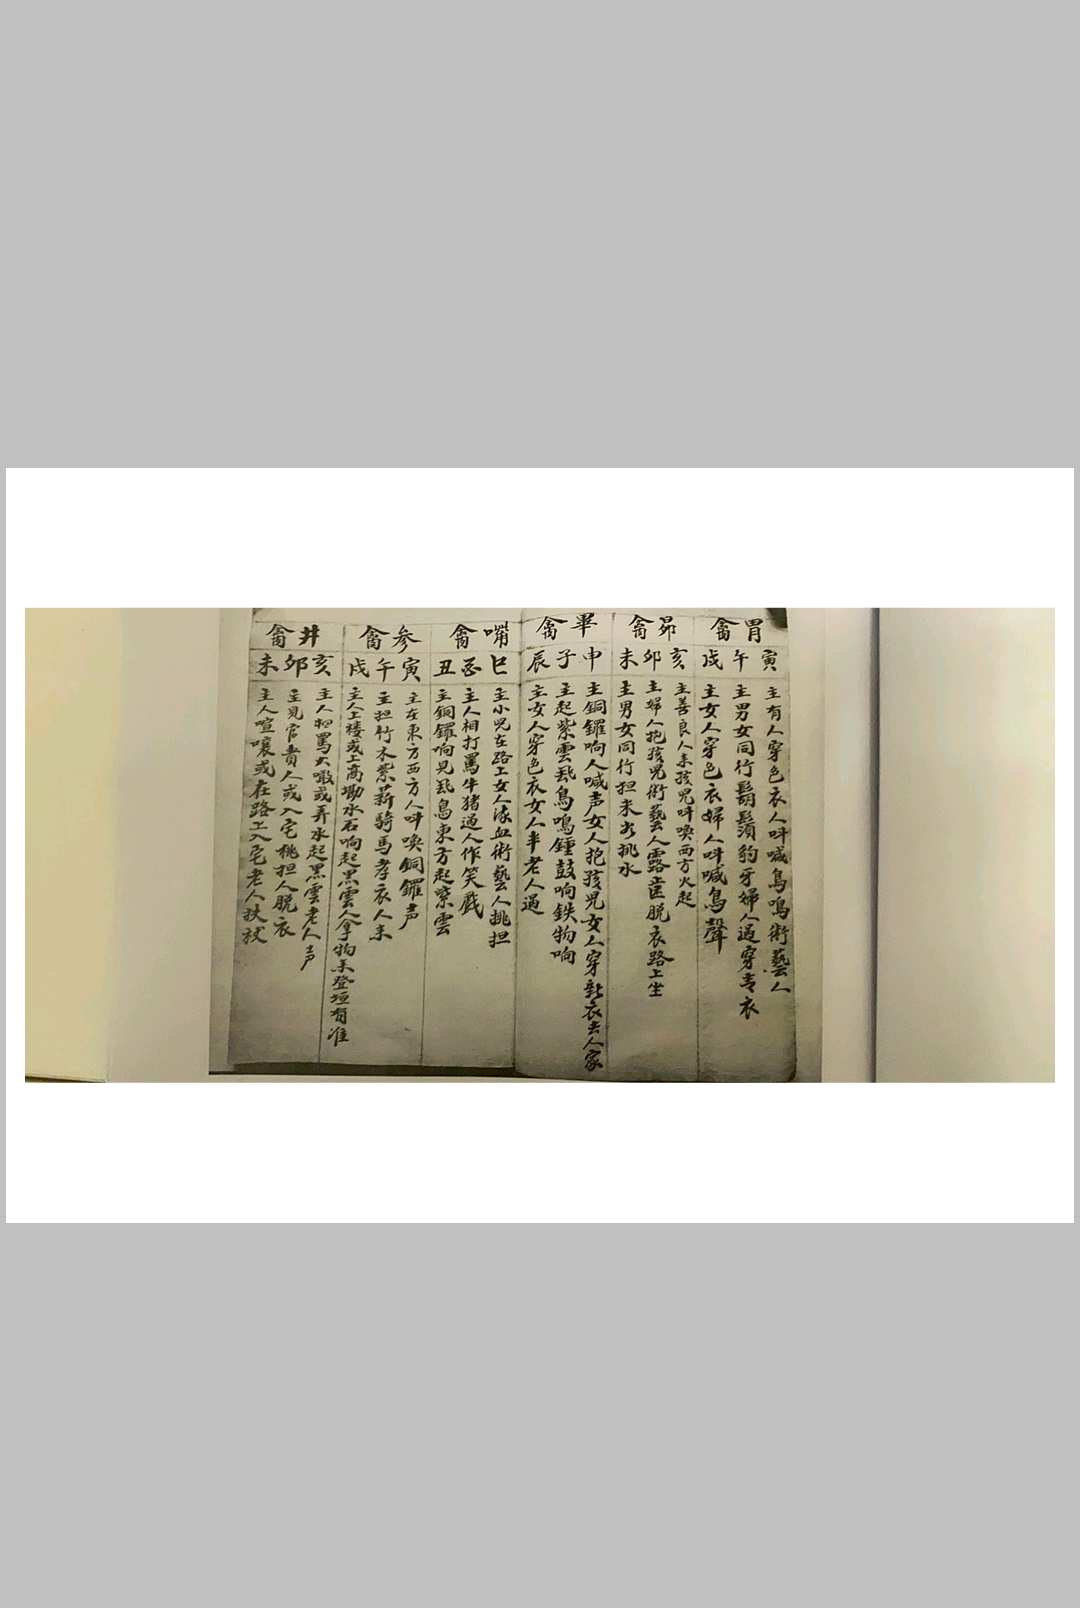 胃禽
寅 午 戌
主有人穿色衣人呌喊鳥鳴術藝人
主男女同行鬍鬚豹牙婦人過穿青衣
主女人穿色衣婦人呌喊鳥聲
昴禽
亥 卯 未
主善良人来孩児呌喚西方火起
主婦人抱孩児術藝人露脱衣路上坐
主男女同行担米挑水
畢禽
申 子 辰
主銅鑼响人喊声女人抱孩児女人穿新衣去人家
主起紫雲飛鳥鳴鍾鼓响鉄物响
主女人穿色衣女人半老人過
嘴禽
巳 酉 丑
主小児在路上女人血術藝人挑担
主人相打罵牛猪過人作笑戲
主銅鑼响見飛鳥東方起紫雲
参禽
寅 午 戌
主在東方西方人呌喚銅鑼声
主担竹木紫薪騎馬孝衣人来
主人上楼或上高墈水石响起黒雲人拿物来登垣有准
井禽
亥 卯 未
主人相罵大或弄水起黒雲老人声
主見官貴人或入宅桃担人脱衣
主人喧嚷或在路上入宅老人扶杖